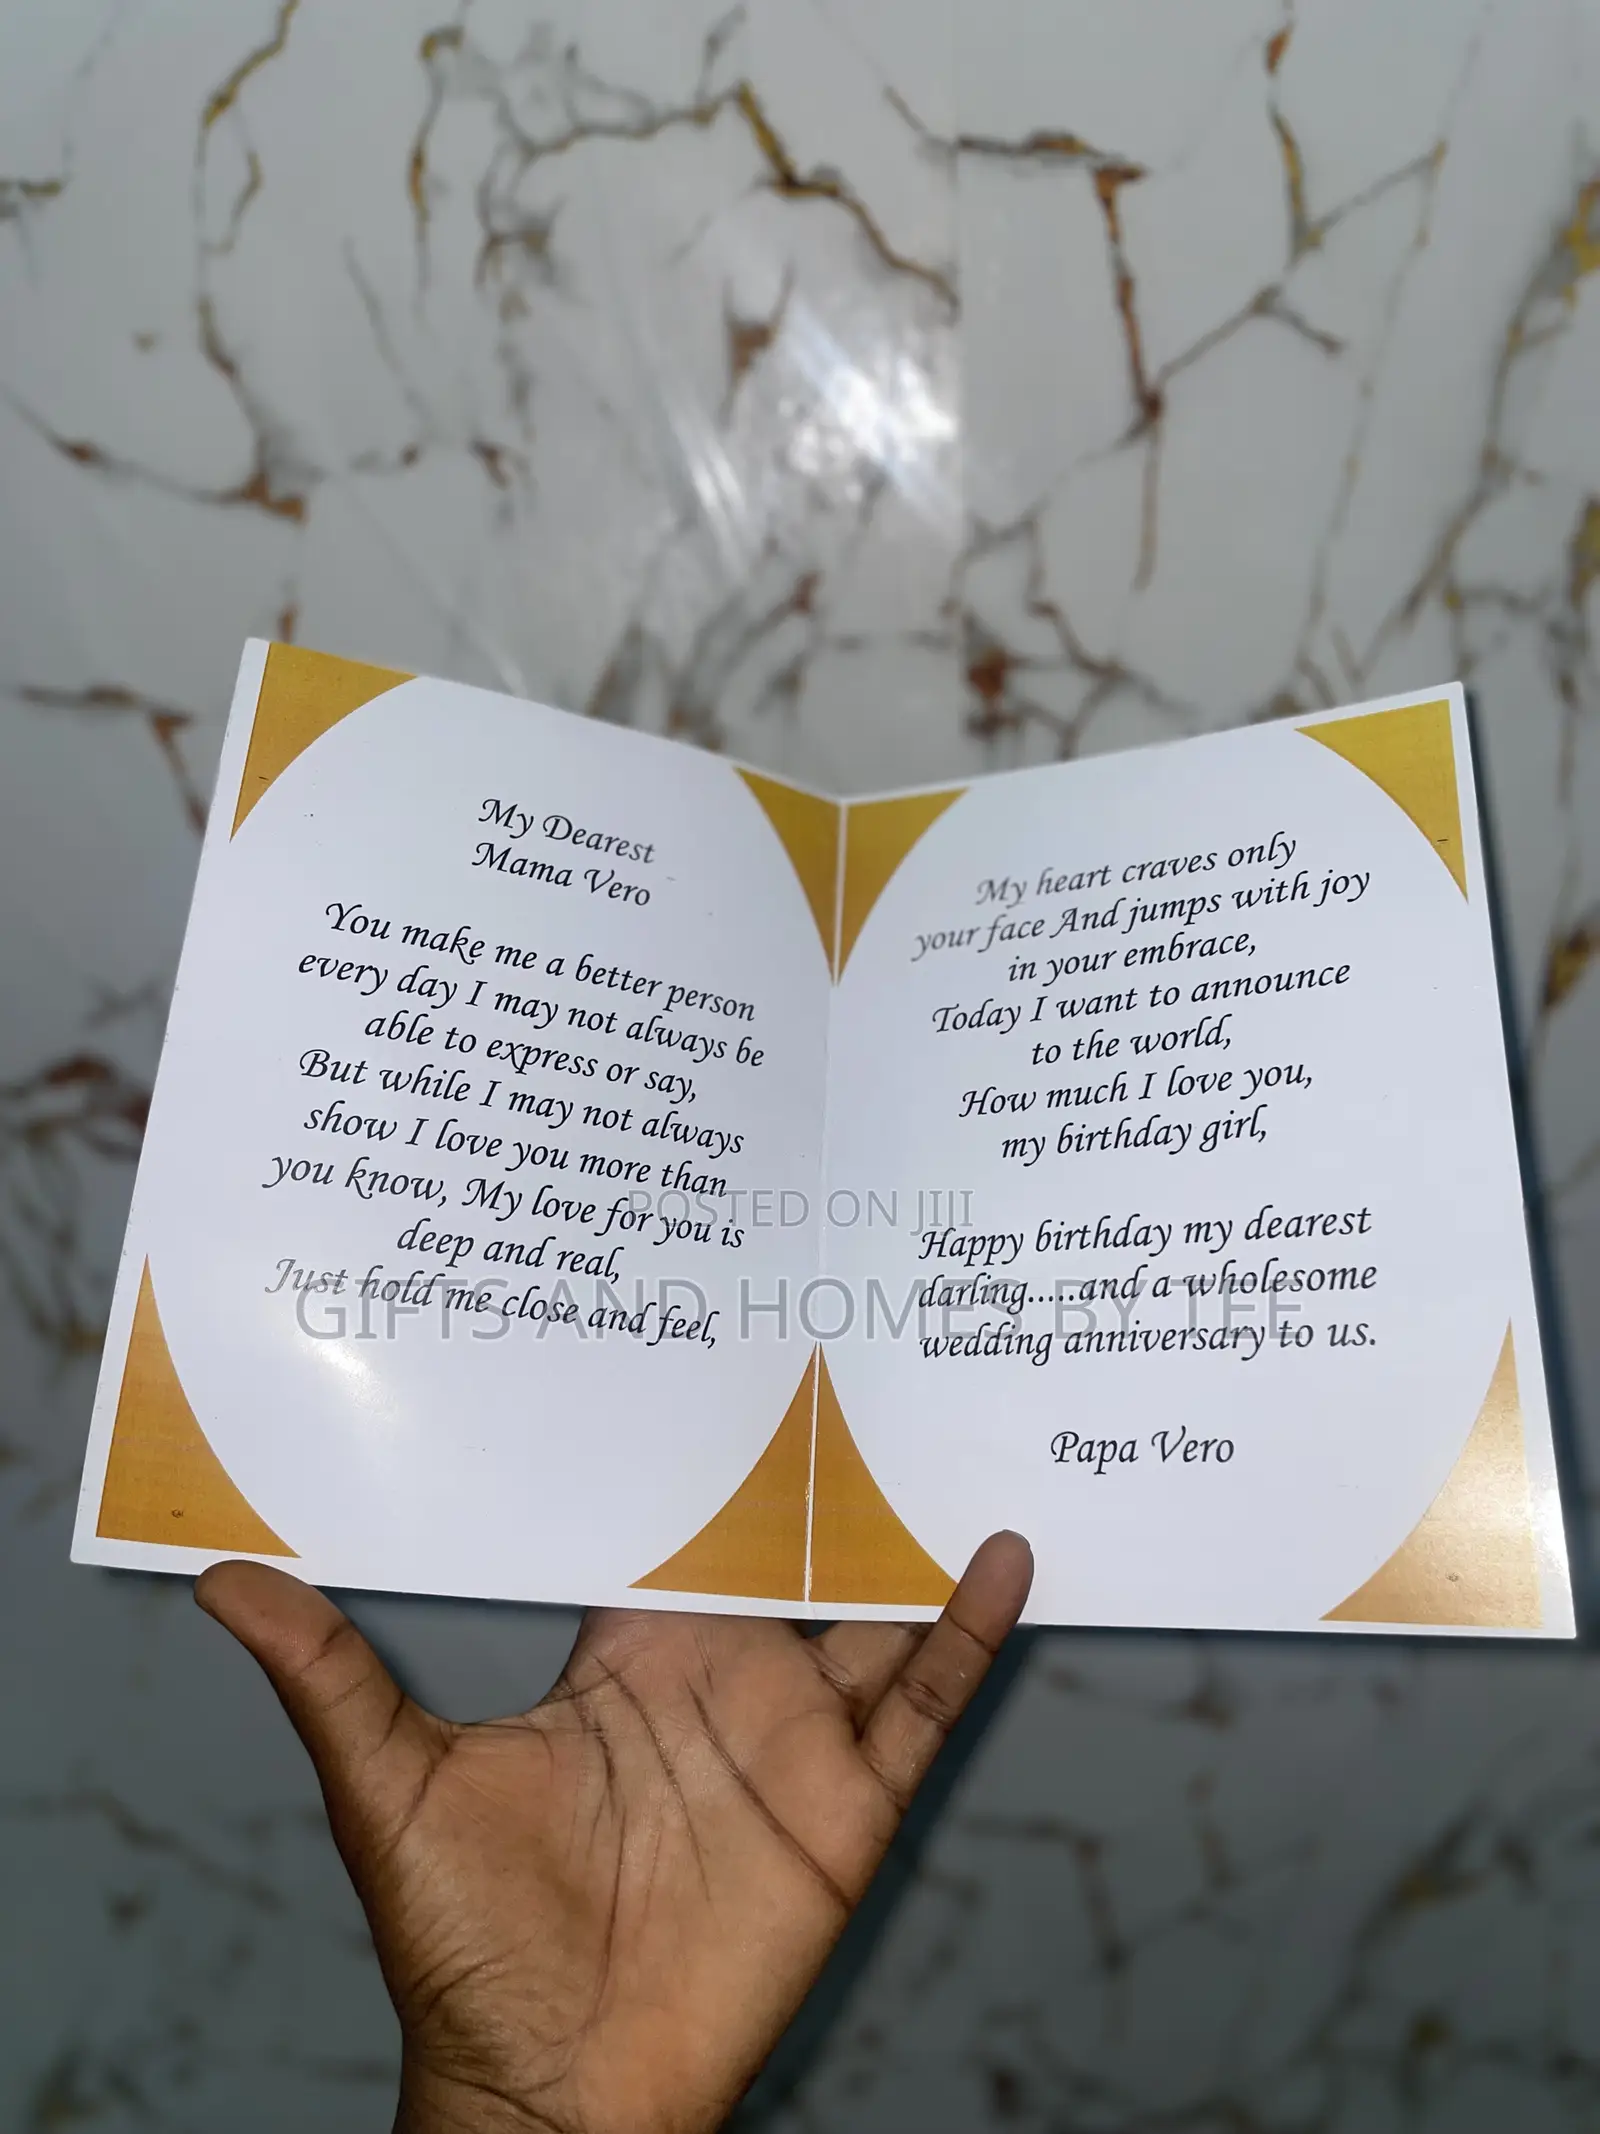 My Dearest
Mama Vero
You make me a better person
every day I may not always be
able to express or say,
But while I may not always
show I love you more than
you know, My love for you is
deep and real,
Just hold me close and feel,
My heart craves only
your face And jumps with joy
in your embrace,
Today I want to announce
to the world,
How much I love you,
my birthday girl,
Happy birthday my dearest
darling.....and a wholesome
wedding anniversary to us.
Papa Vero
POSTED ON JIJI
GIFTS AND HOMES BY TEE